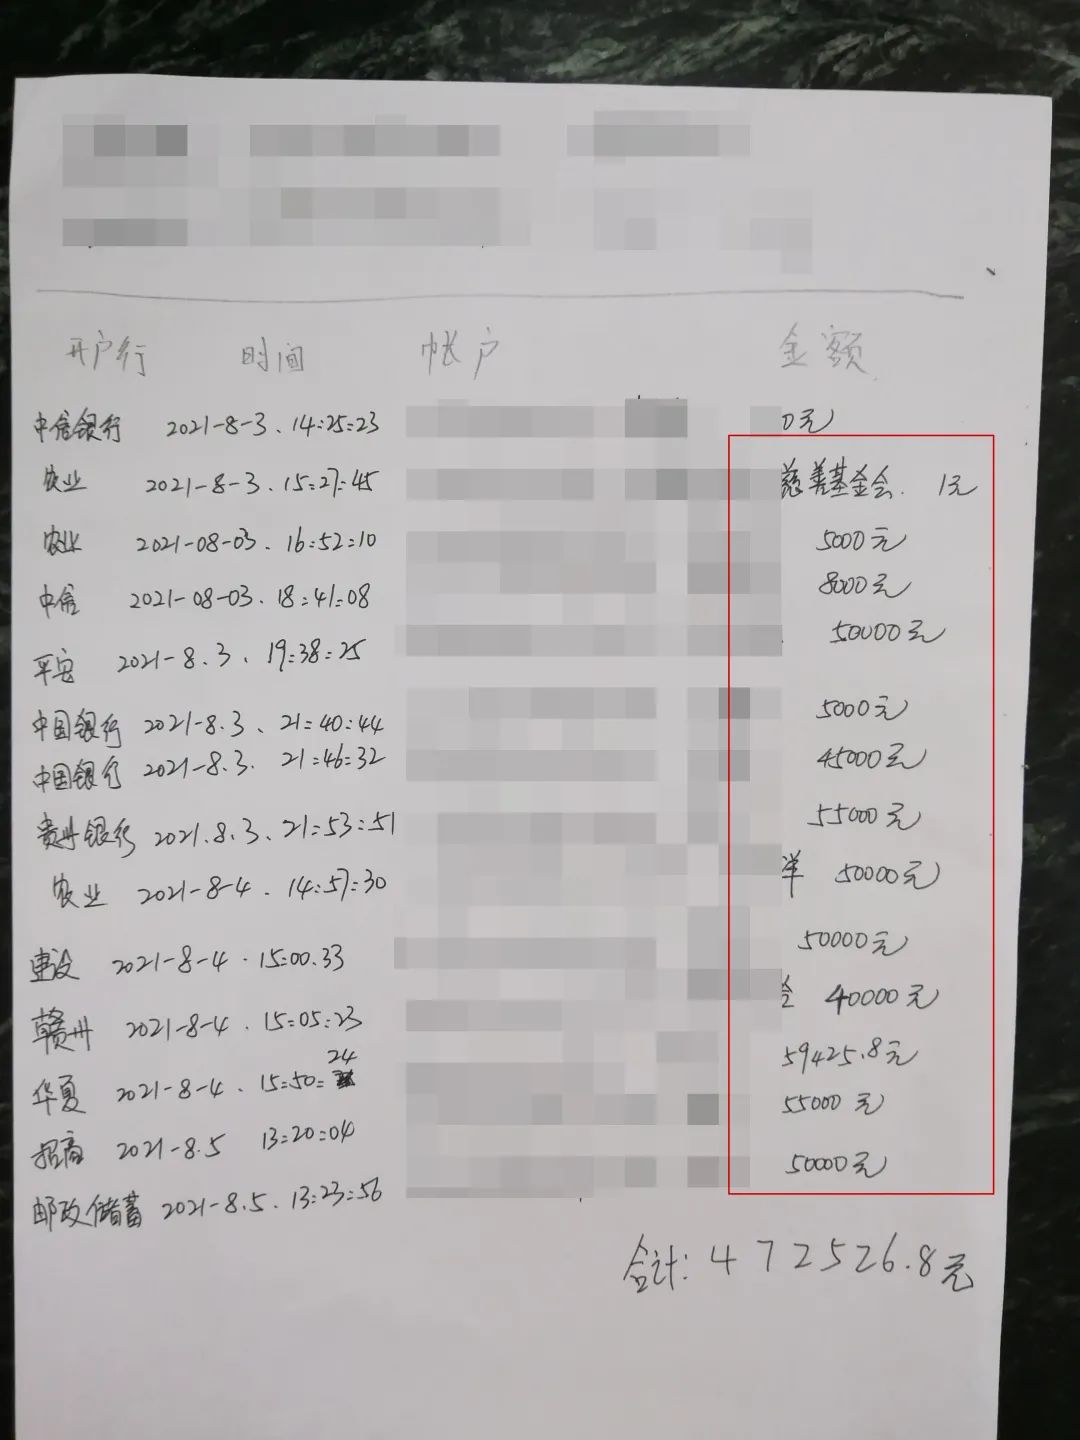 开户行 时间 帐户 金额
中信银行 2021-8-3、14:25:23 0元
农业 2021-8-3、15:27:45 慈善基金会. 1元
农业 2021-08-03、16:52:10 5000元
中信 2021-08-03、18:41:08 8000元
平安 2021-8.3、19:38:25 50000元
中国银行 2021-8.3、21:40:44 5000元
中国银行 2021-8.3. 21:46:32 45000元
贵州银行 2021.8.3、21:53:51 55000元
农业 2021-8-4、14:57:30 洋 50000元
建设 2021-8-4·15:00.33 50000元
赣州 2021-8-4、15:05:23 40000元
华夏 2021-8-4、15:50:24 59425.8元
招商 2021-8.5 13:20:04 55000元
邮政储蓄 2021-8.5、13:23:56 50000元
合计:472526.8元